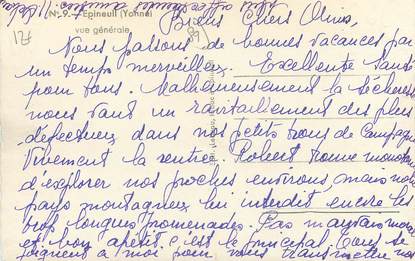 N° 9. - Epineuil (Yonne)
vue générale
Bien Chers Amis,
Nous passons de bonnes vacances par
un temps merveilleux. Excellente santé
pour tous. Malheureusement la sécheresse
nous vaut un ravitaillement des plus
défectueux dans nos petits trous de campagne
Vivement la rentrée. Robert trouve monotone
d'explorer nos proches environs, mais notre
pays montagneux lui interdit encore les
trop longues promenades. Pas mauvais moral
et bon appétit c'est le principal. Tous se
joignent à moi pour vous transmettre nos